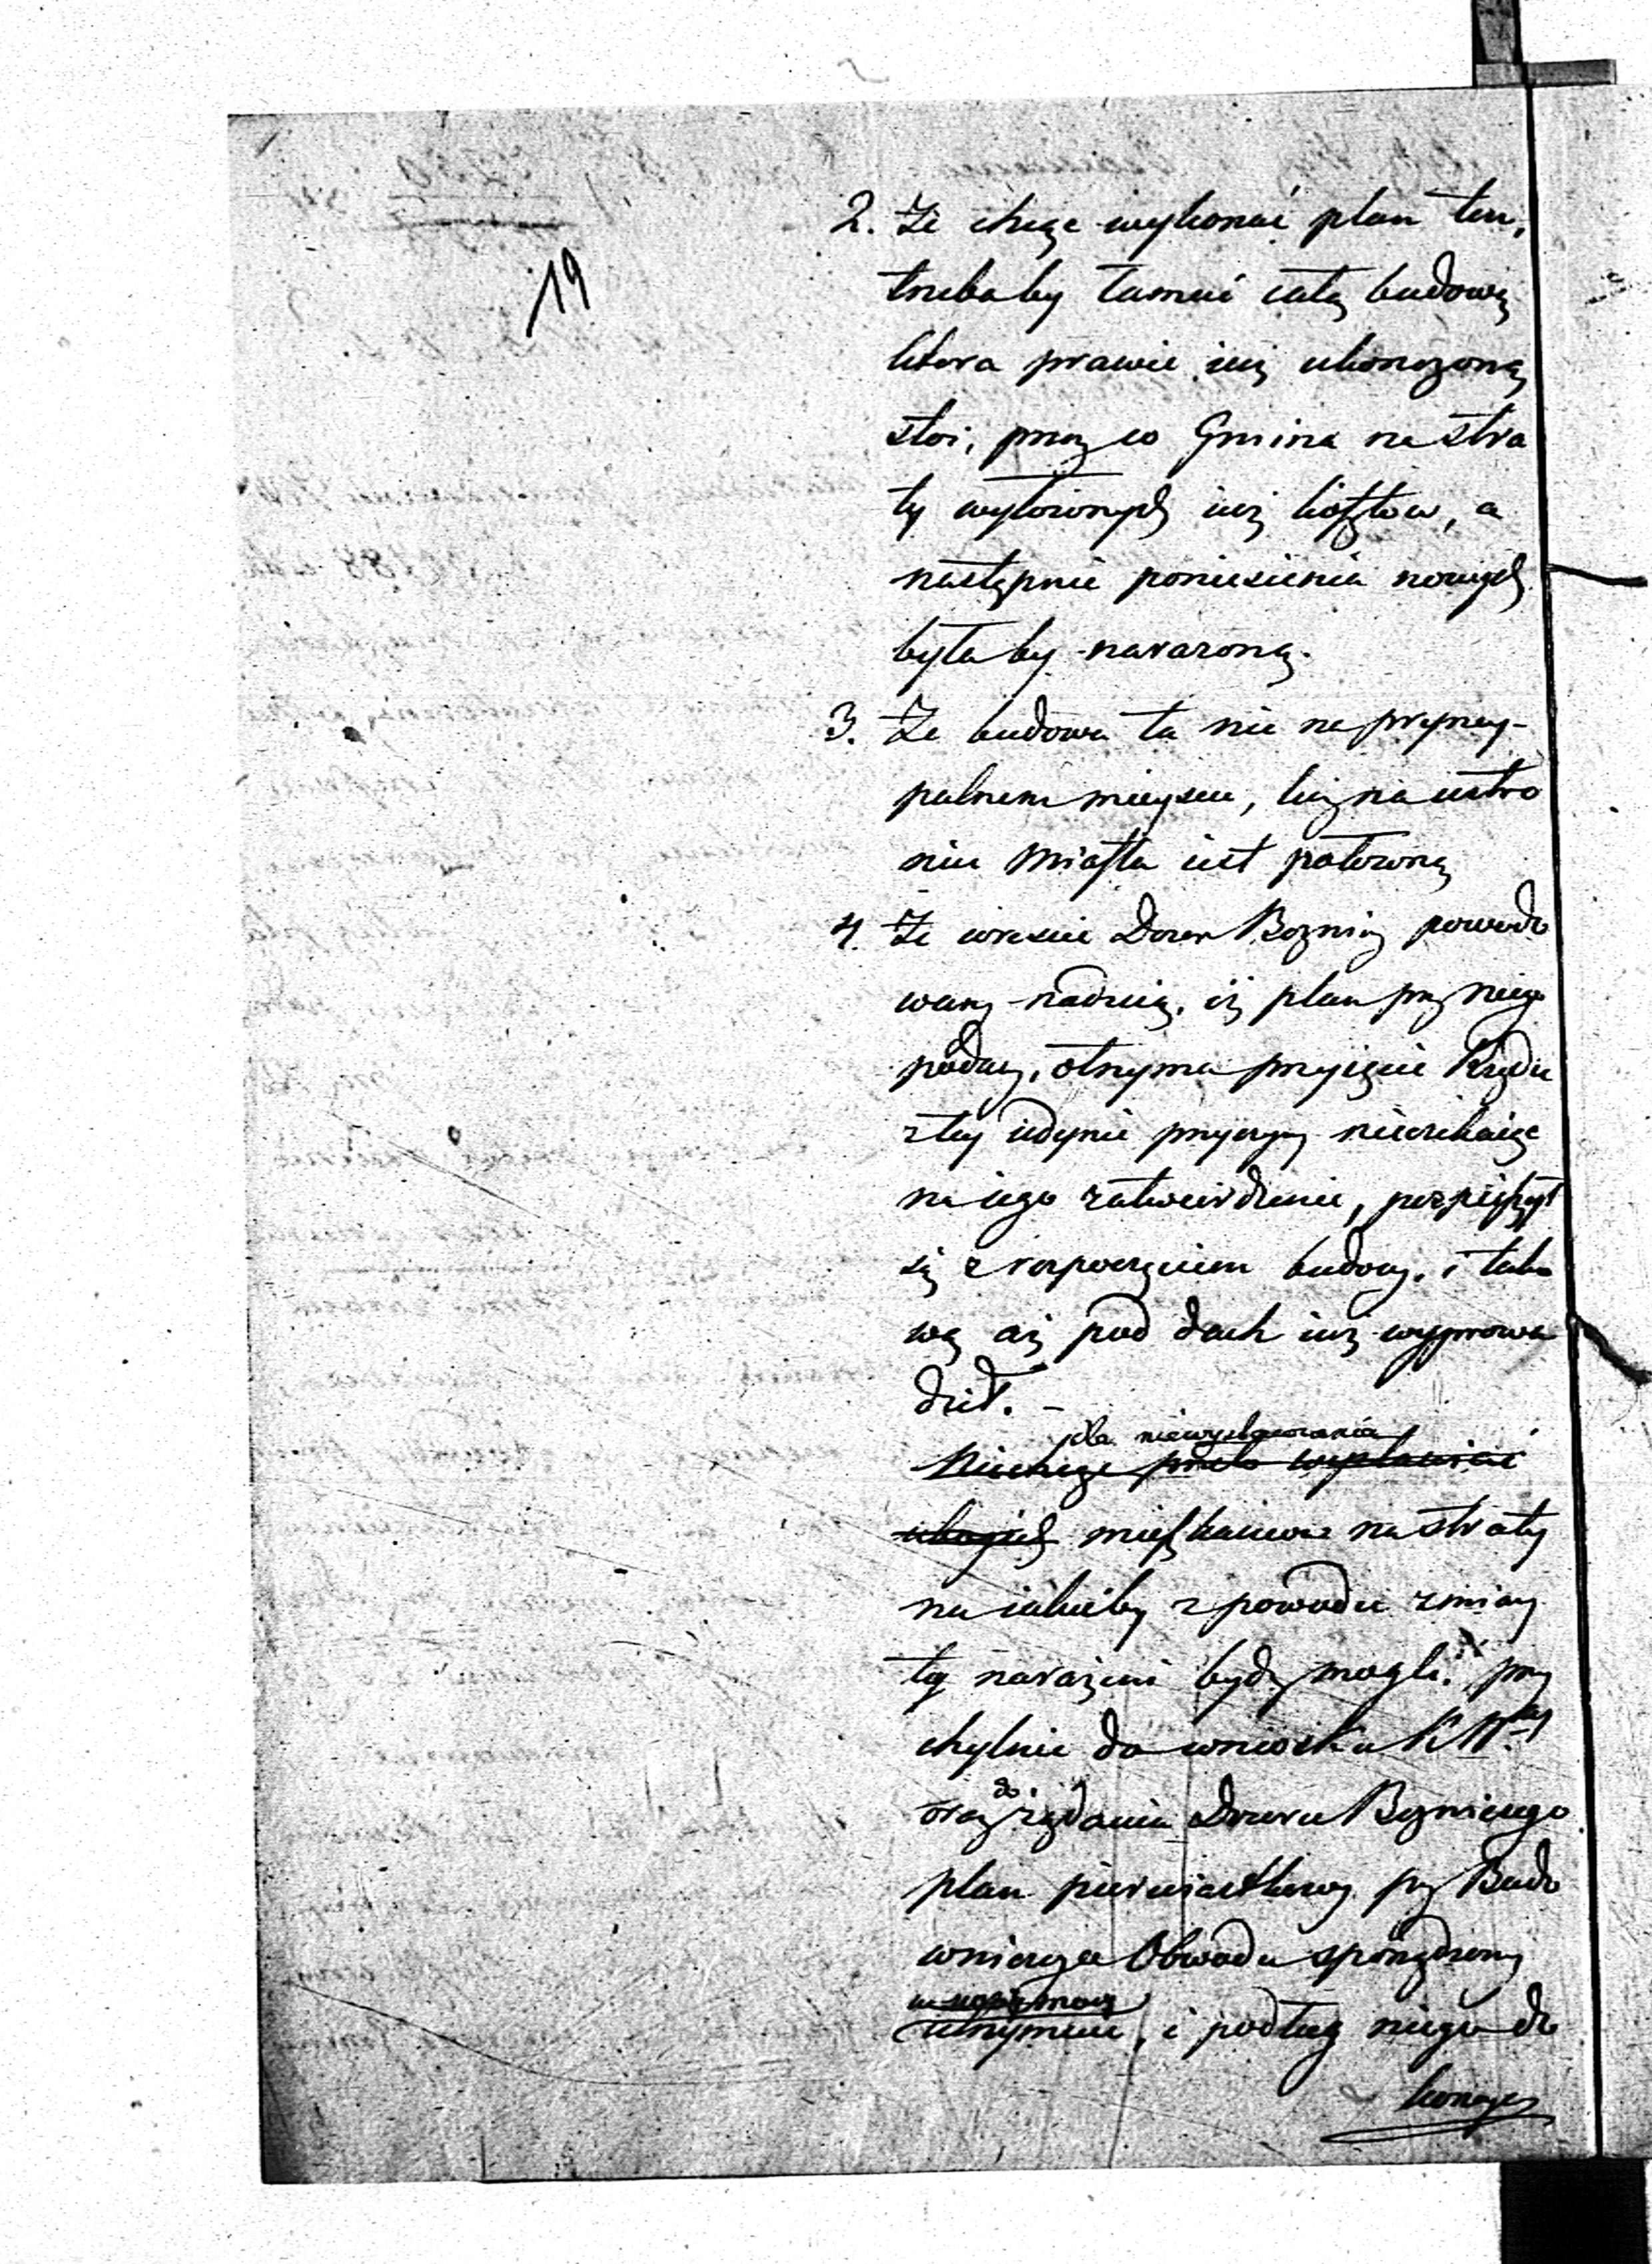 19
2. Że chcąc wykonać plan ten,
trzeba by łamać całą budowę
która prawie iuż ukończoną
stoi, przez co Gmina na stra
ty wyłożonych iuż kosztow, a
następnie poniesienia nowych
była by narażoną.
3. Że budowa ta nie na pryncy-
palnem mieyscu, lecz na ustro
niu Miasta iest położoną
4. Że wreście Dozor Bożniczy powodo
wany nadzieią, iż plan przez niego
podany, otrzyma przyięcie Rządu
z tey iedynie przyczyny nieczekaiąc
na iego zatwierdzenie, pośpieszył
się z rozpoczęciem budowy, i tako
wą aż pod dach iuż wyprowa
dził. –
dla niewystawiania
Niechcąc przeto wystawiać
ubogich mieszkańców na straty
na iakieby z powodu zmiany
tey narażeni bydź mogli, przy
chylnie do wniosku KW.
do
oraz żądania Dozoru Bożniczego
plan pierwiastkowy przez Budo
wniczego Obwodu sporządzony
utrzymuie, i podług niego do
kończe